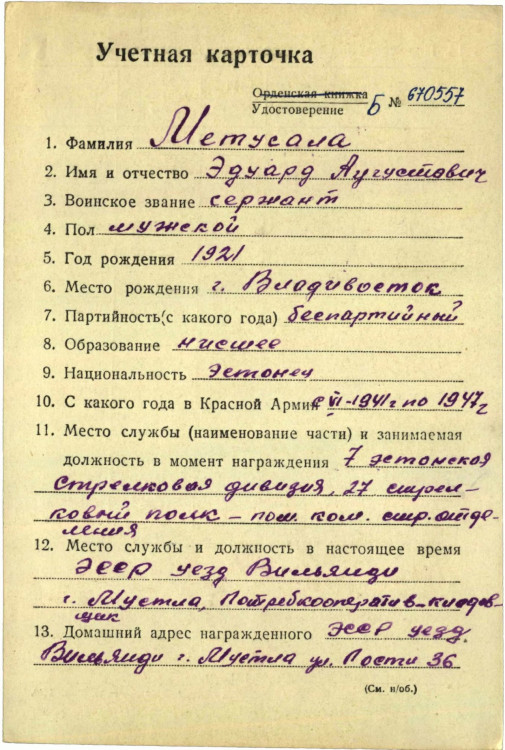 Учетная карточка
Орденская книжка
Удостоверение Б № 670557
1. Фамилия Метусала
2. Имя и отчество Эдуард Аугустович
3. Воинское звание сержант
4. Пол мужской
5. Год рождения 1921
6. Место рождения г. Владивосток
7. Партийность (с какого года) беспартийный
8. Образование нисшее
9. Национальность эстонец
10. С какого года в Красной Армии с VI-1941г по 1947г
11. Место службы (наименование части) и занимаемая
должность в момент награждения 7 эстонская
стрелковая дивизия, 27 стрел-
ковый полк – пом. ком. стр. отде-
ления
12. Место службы и должность в настоящее время
ЭССР уезд Вильянди
г. Мустла, Потребкооператив – кладов-
щик
13. Домашний адрес награжденного ЭССР уезд.
Вильянди г. Мустла ул. Пости 36
(См. н/об.)